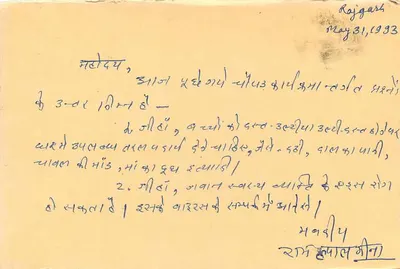 Rajgarh
May 31, 1993
महोदय,
आज पूछे गये चौपड कार्यक्रमान्तर्गत प्रश्नों
के उत्तर निम्न हैं —
1. जी हाँ, बच्चों को दस्त-उल्टीया उल्टी-दस्त होने पर
घर में उपलब्ध तरल पदार्थ देने चाहिए, जैसे - दही, दाल का पानी,
चावल की मांड, मां का दूध इत्यादि।
2. जी हाँ, जवान स्वस्थ व्यक्ति के एड्स रोग
हो सकता है। इसके वाइरस के सम्पर्क में आने से।
भवदीय
राम दयाल मीना